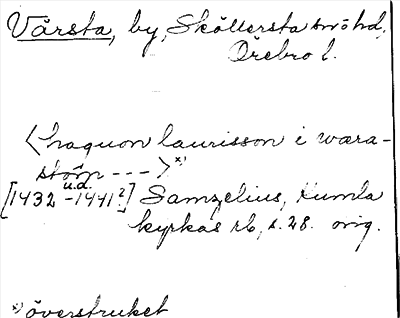 Vårsta, by, Sköllersta sn o hd,
Örebro l.
<haquon laurisson i wara-
stom --->*)
u.å.
[1432-1441?] Samzelius, Kumla
kyrkas rb, s. 28. orig.
*) överstruket